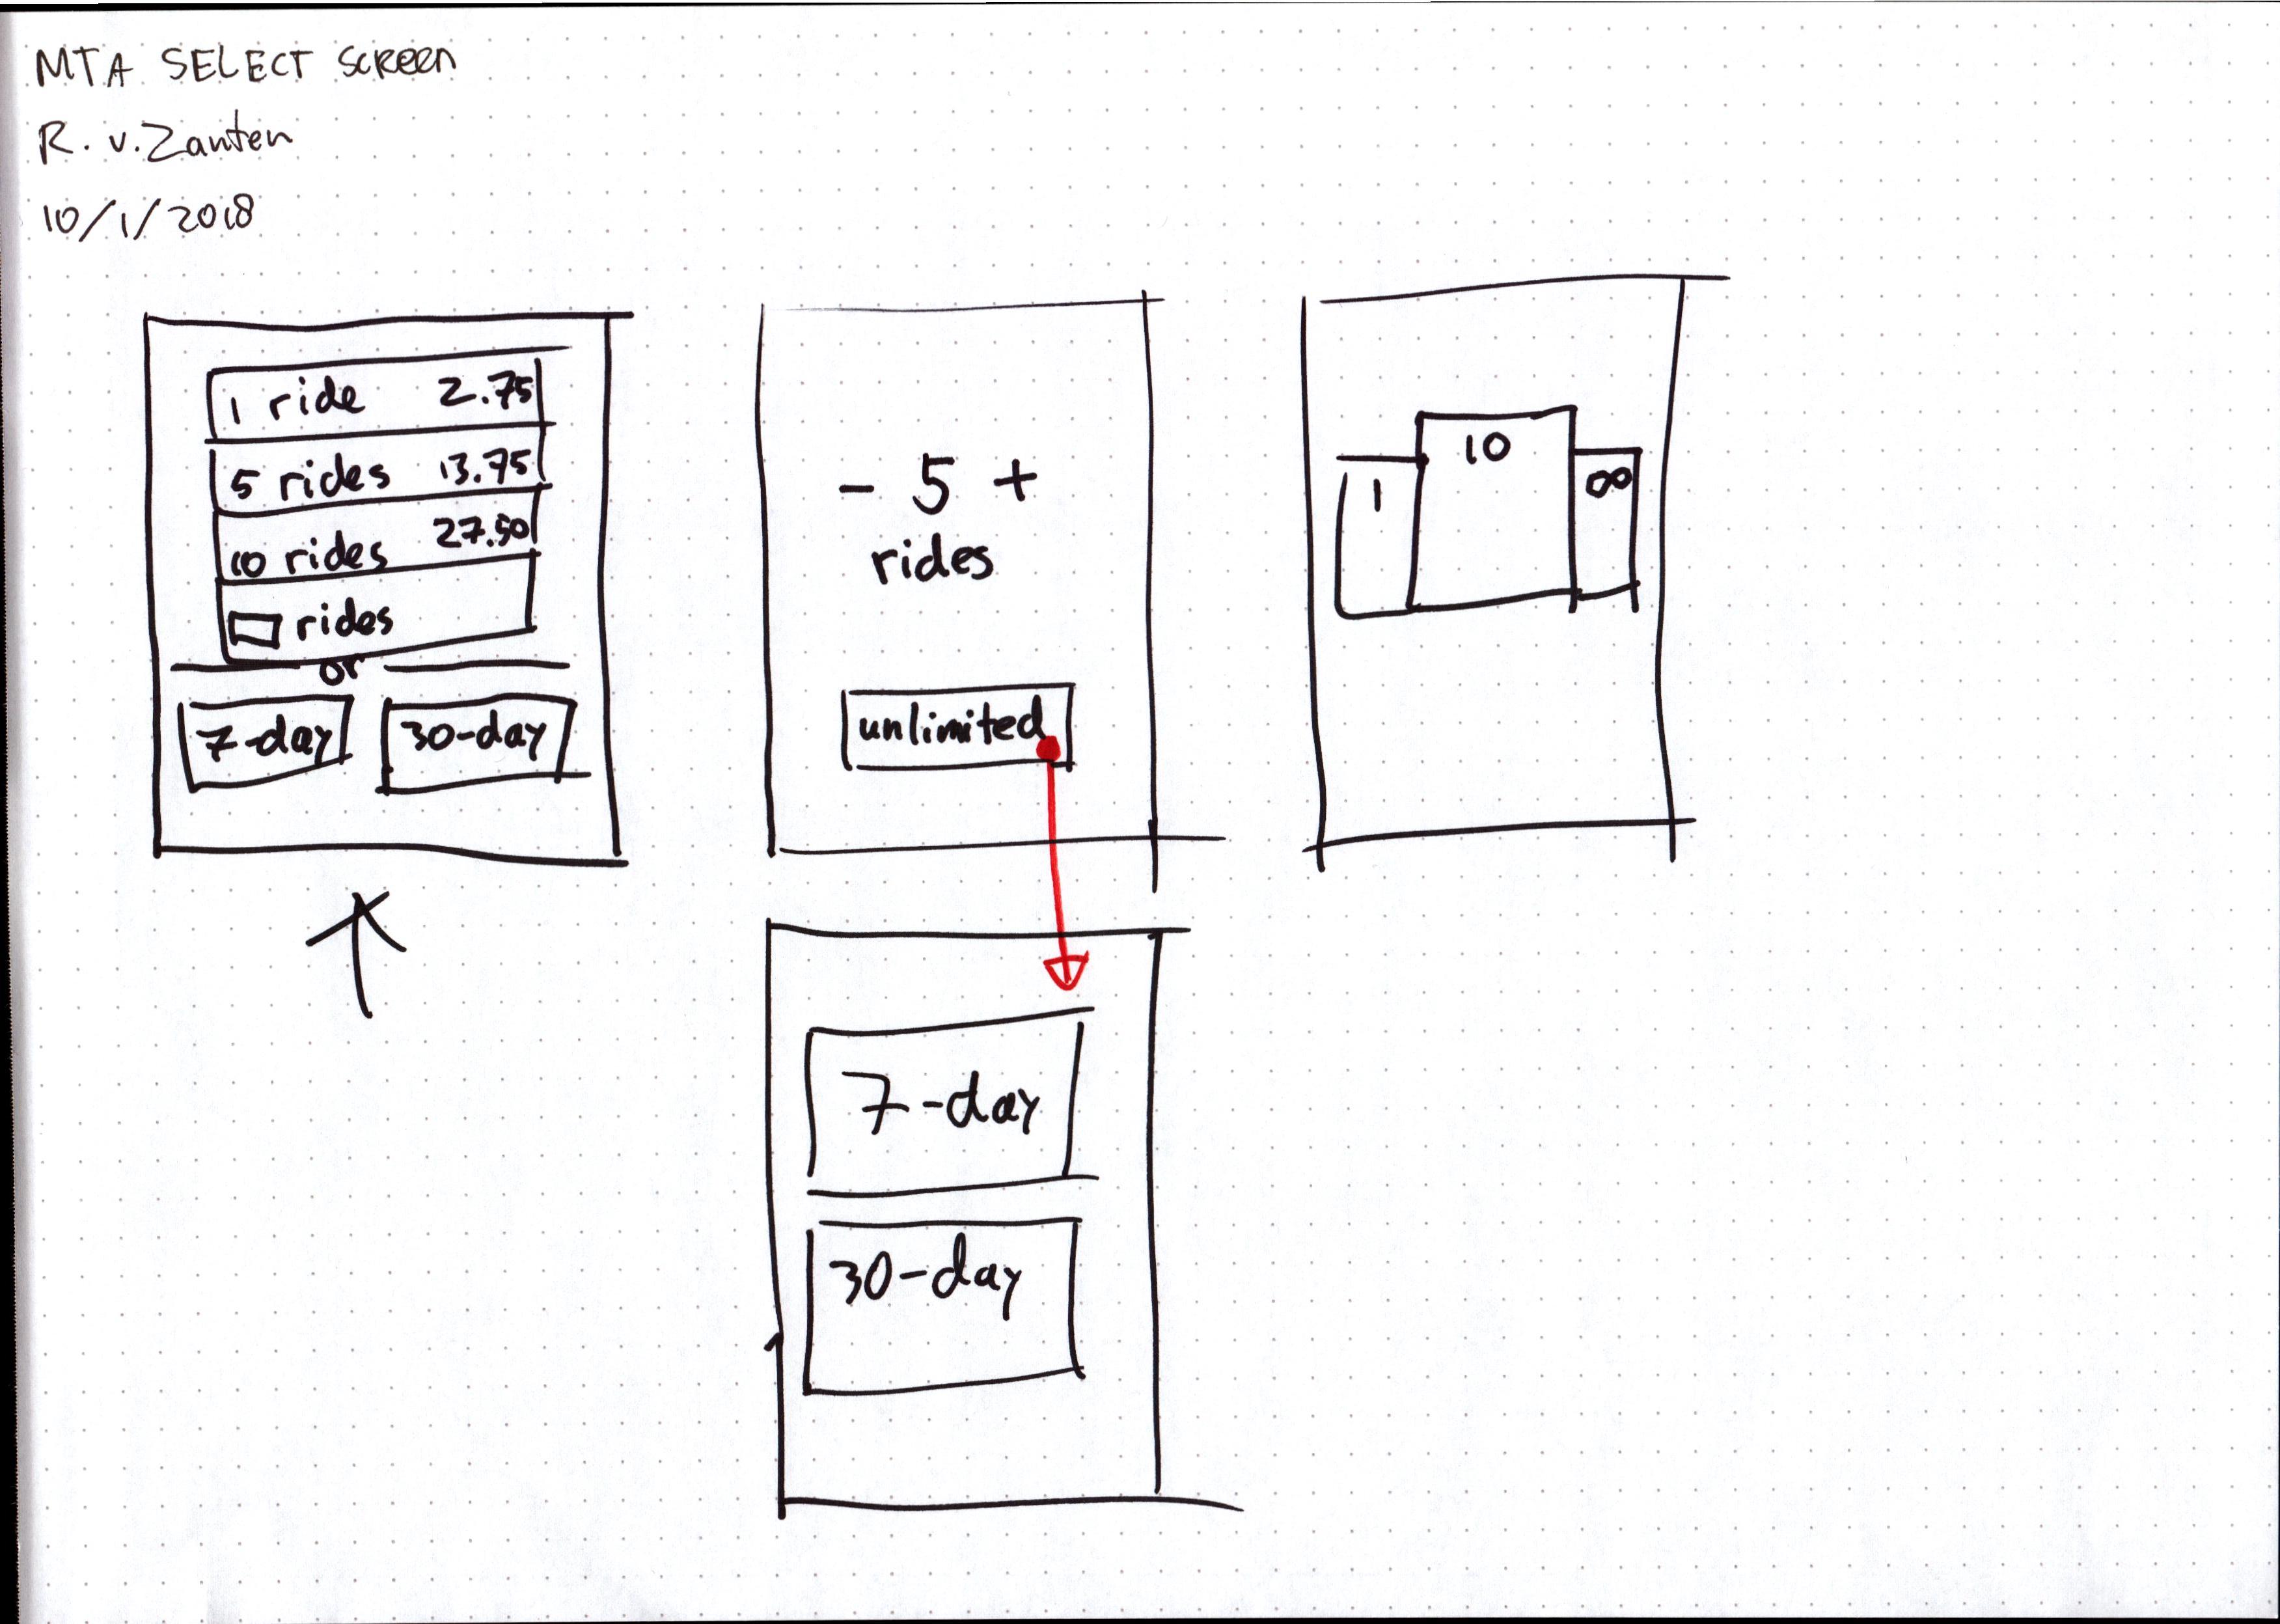 MTA SELECT SCREEN
R. v. Zanten
10/1/2018
1 ride 2.75
5 rides 13.75
10 rides 27.50
rides
or
7-day 30-day
- 5 +
rides
unlimited
1 10 ∞
7-day
30-day